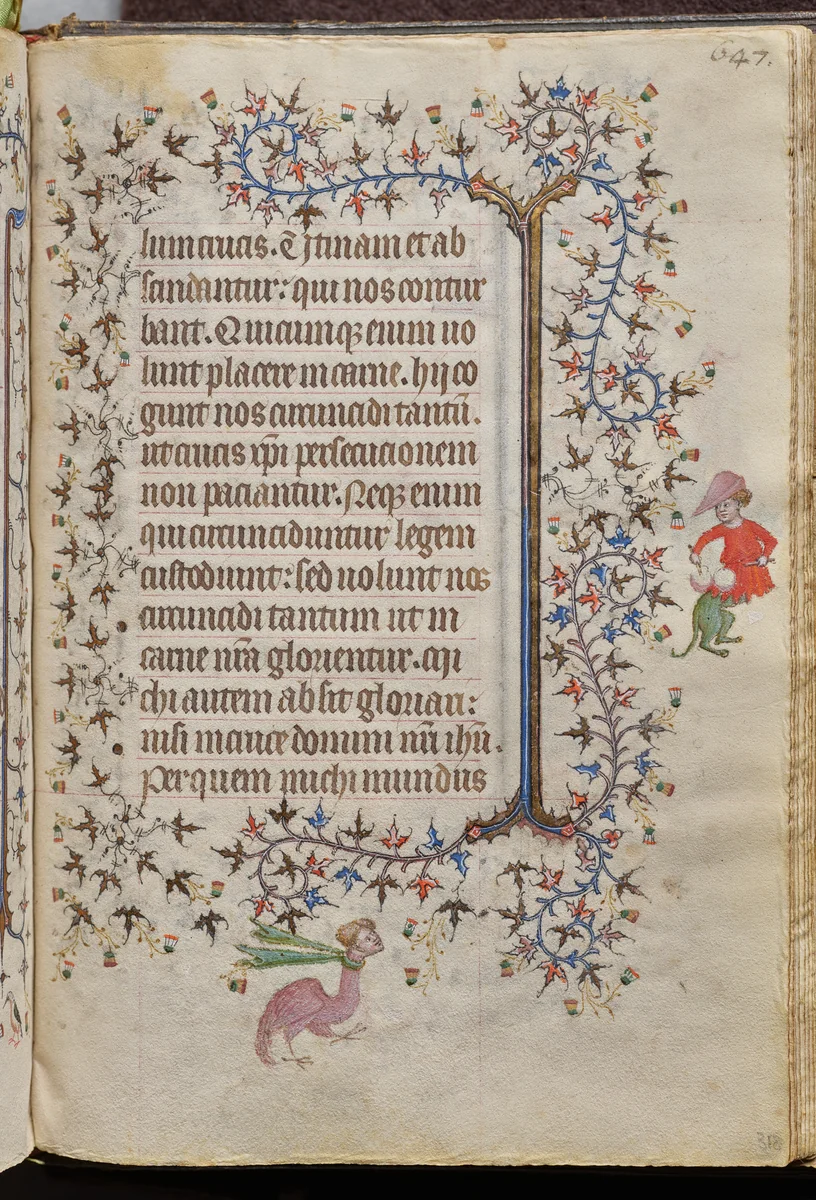 647.
lum crucis. ē vtinam et ab
scindantur: qui nos contur
bant. Quicumqȝ enim uo
lunt placere in carne. hij co
gunt nos circuncidi tantū.
ut crucis xp̄i persecucionem
non paciantur. Neqȝ enim
qui circunciduntur legem
custodiunt: sed uolunt nos
circuncidi tantum ut in
carne nr̄a glorientur. Mi
chi autem absit gloriari:
nisi in cruce domini nr̄i ihū.
Per quem michi mundus
318